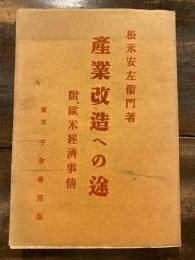 松永安左衞門著
産業改造への途
附、歐米經濟事情
東京 千倉書房版